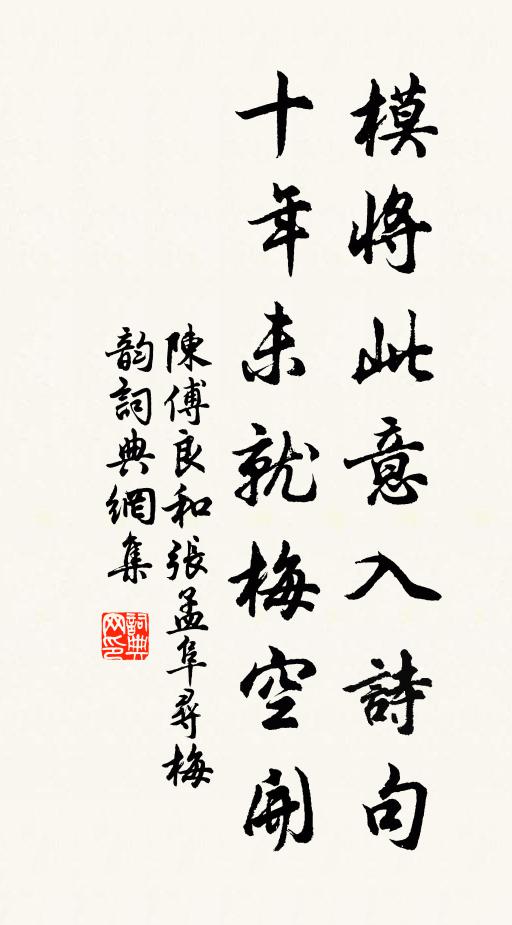 模將此意入詩句
十年未就梅空開
陳傅良和張孟阜尋梅
韵詞典網集
詞典网印